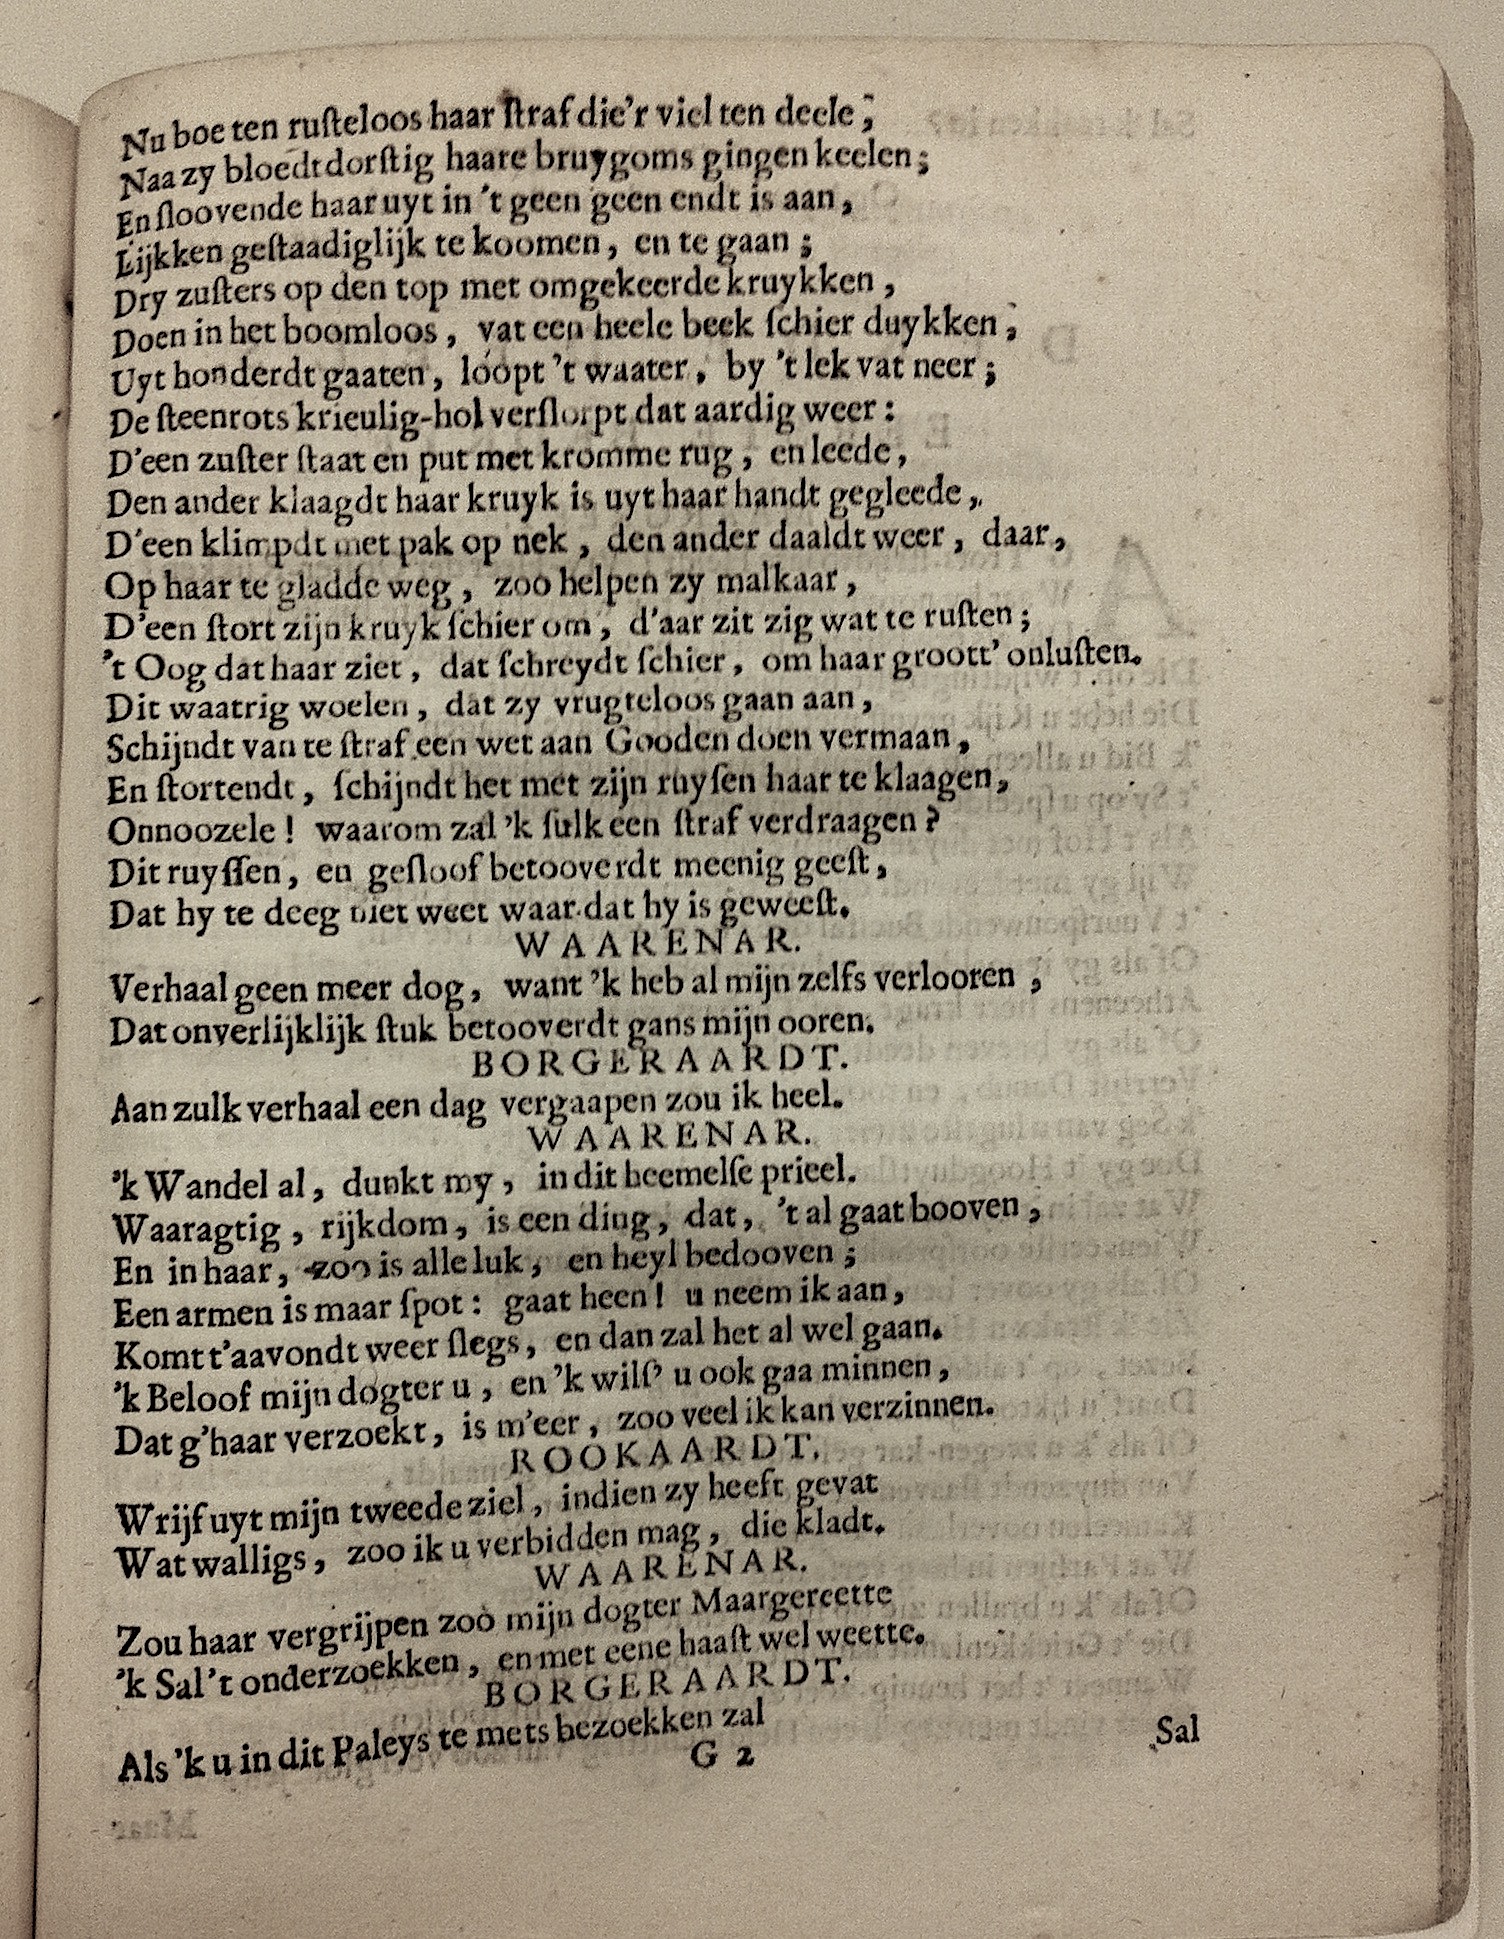 Nu boeten rusteloos haar straf die'r viel ten deele;
Naa zy bloedtdorstig haare bruygoms gingen keelen;
En sloovende haar uyt in 't geen geen endt is aan,
Lijkken gestaadiglijk te koomen, en te gaan;
Dry zusters op den top met omgekeerde kruykken,
Doen in het boomloos, vat een heele beek schier duykken;
Uyt honderdt gaaten, loopt 't waater, by 't lek vat neer;
De steenrots krieulig-hol verslorpt dat aardig weer:
D'een zuster staat en put met kromme rug, en leede,
Den ander klaagdt haar kruyk is uyt haar handt gegleede,
D'een klimpdt met pak op nek, den ander daaldt weer, daar,
Op haar te gladde weg, zoo helpen zy malkaar,
D'een stort zijn kruyk schier om, d'aar zit zig wat te rusten;
't Oog dat haar ziet, dat schreydt schier, om haar groott' onlusten.
Dit waatrig woelen, dat zy vrugteloos gaan aan,
Schijndt van te straf een wet aan Gooden doen vermaan,
En stortendt, schijndt het met zijn ruysen haar te klaagen,
Onnoozele! waarom zal 'k sulk een straf verdraagen?
Dit ruyssen, en gesloof betooverdt meenig geest,
Dat hy te deeg niet weet waar dat hy is geweest.
WAARENAR.
Verhaal geen meer dog, want 'k heb al mijn zelfs verlooren,
Dat onverlijklijk stuk betooverdt gans mijn ooren.
BORGERAARDT.
Aan zulk verhaal een dag vergaapen zou ik heel.
WAARENAR.
'k Wandel al, dunkt my, in dit heemelse prieel.
Waaragtig, rijkdom, is een ding, dat, 't al gaat booven,
En in haar, zoo is alle luk, en heyl bedooven;
Een armen is maar spot: gaat heen! u neem ik aan,
Komt t'aavondt weer slegs, en dan zal het al wel gaan.
'k Beloof mijn dogter u, en 'k wils' u ook gaa minnen,
Dat g'haar verzoekt, is m'eer, zoo veel ik kan verzinnen.
ROOKAARDT.
Wrijf uyt mijn tweede ziel, indien zy heeft gevat
Wat walligs, zoo ik u verbidden mag, die kladt.
WAARENAR.
Zou haar vergrijpen zoo mijn dogter Maargereette
'k Sal 't onderzoekken, en met eene haast wel weette.
BORGERAARDT.
Als 'k u in dit Paleys te mets bezoekken zal
G 2
Sal